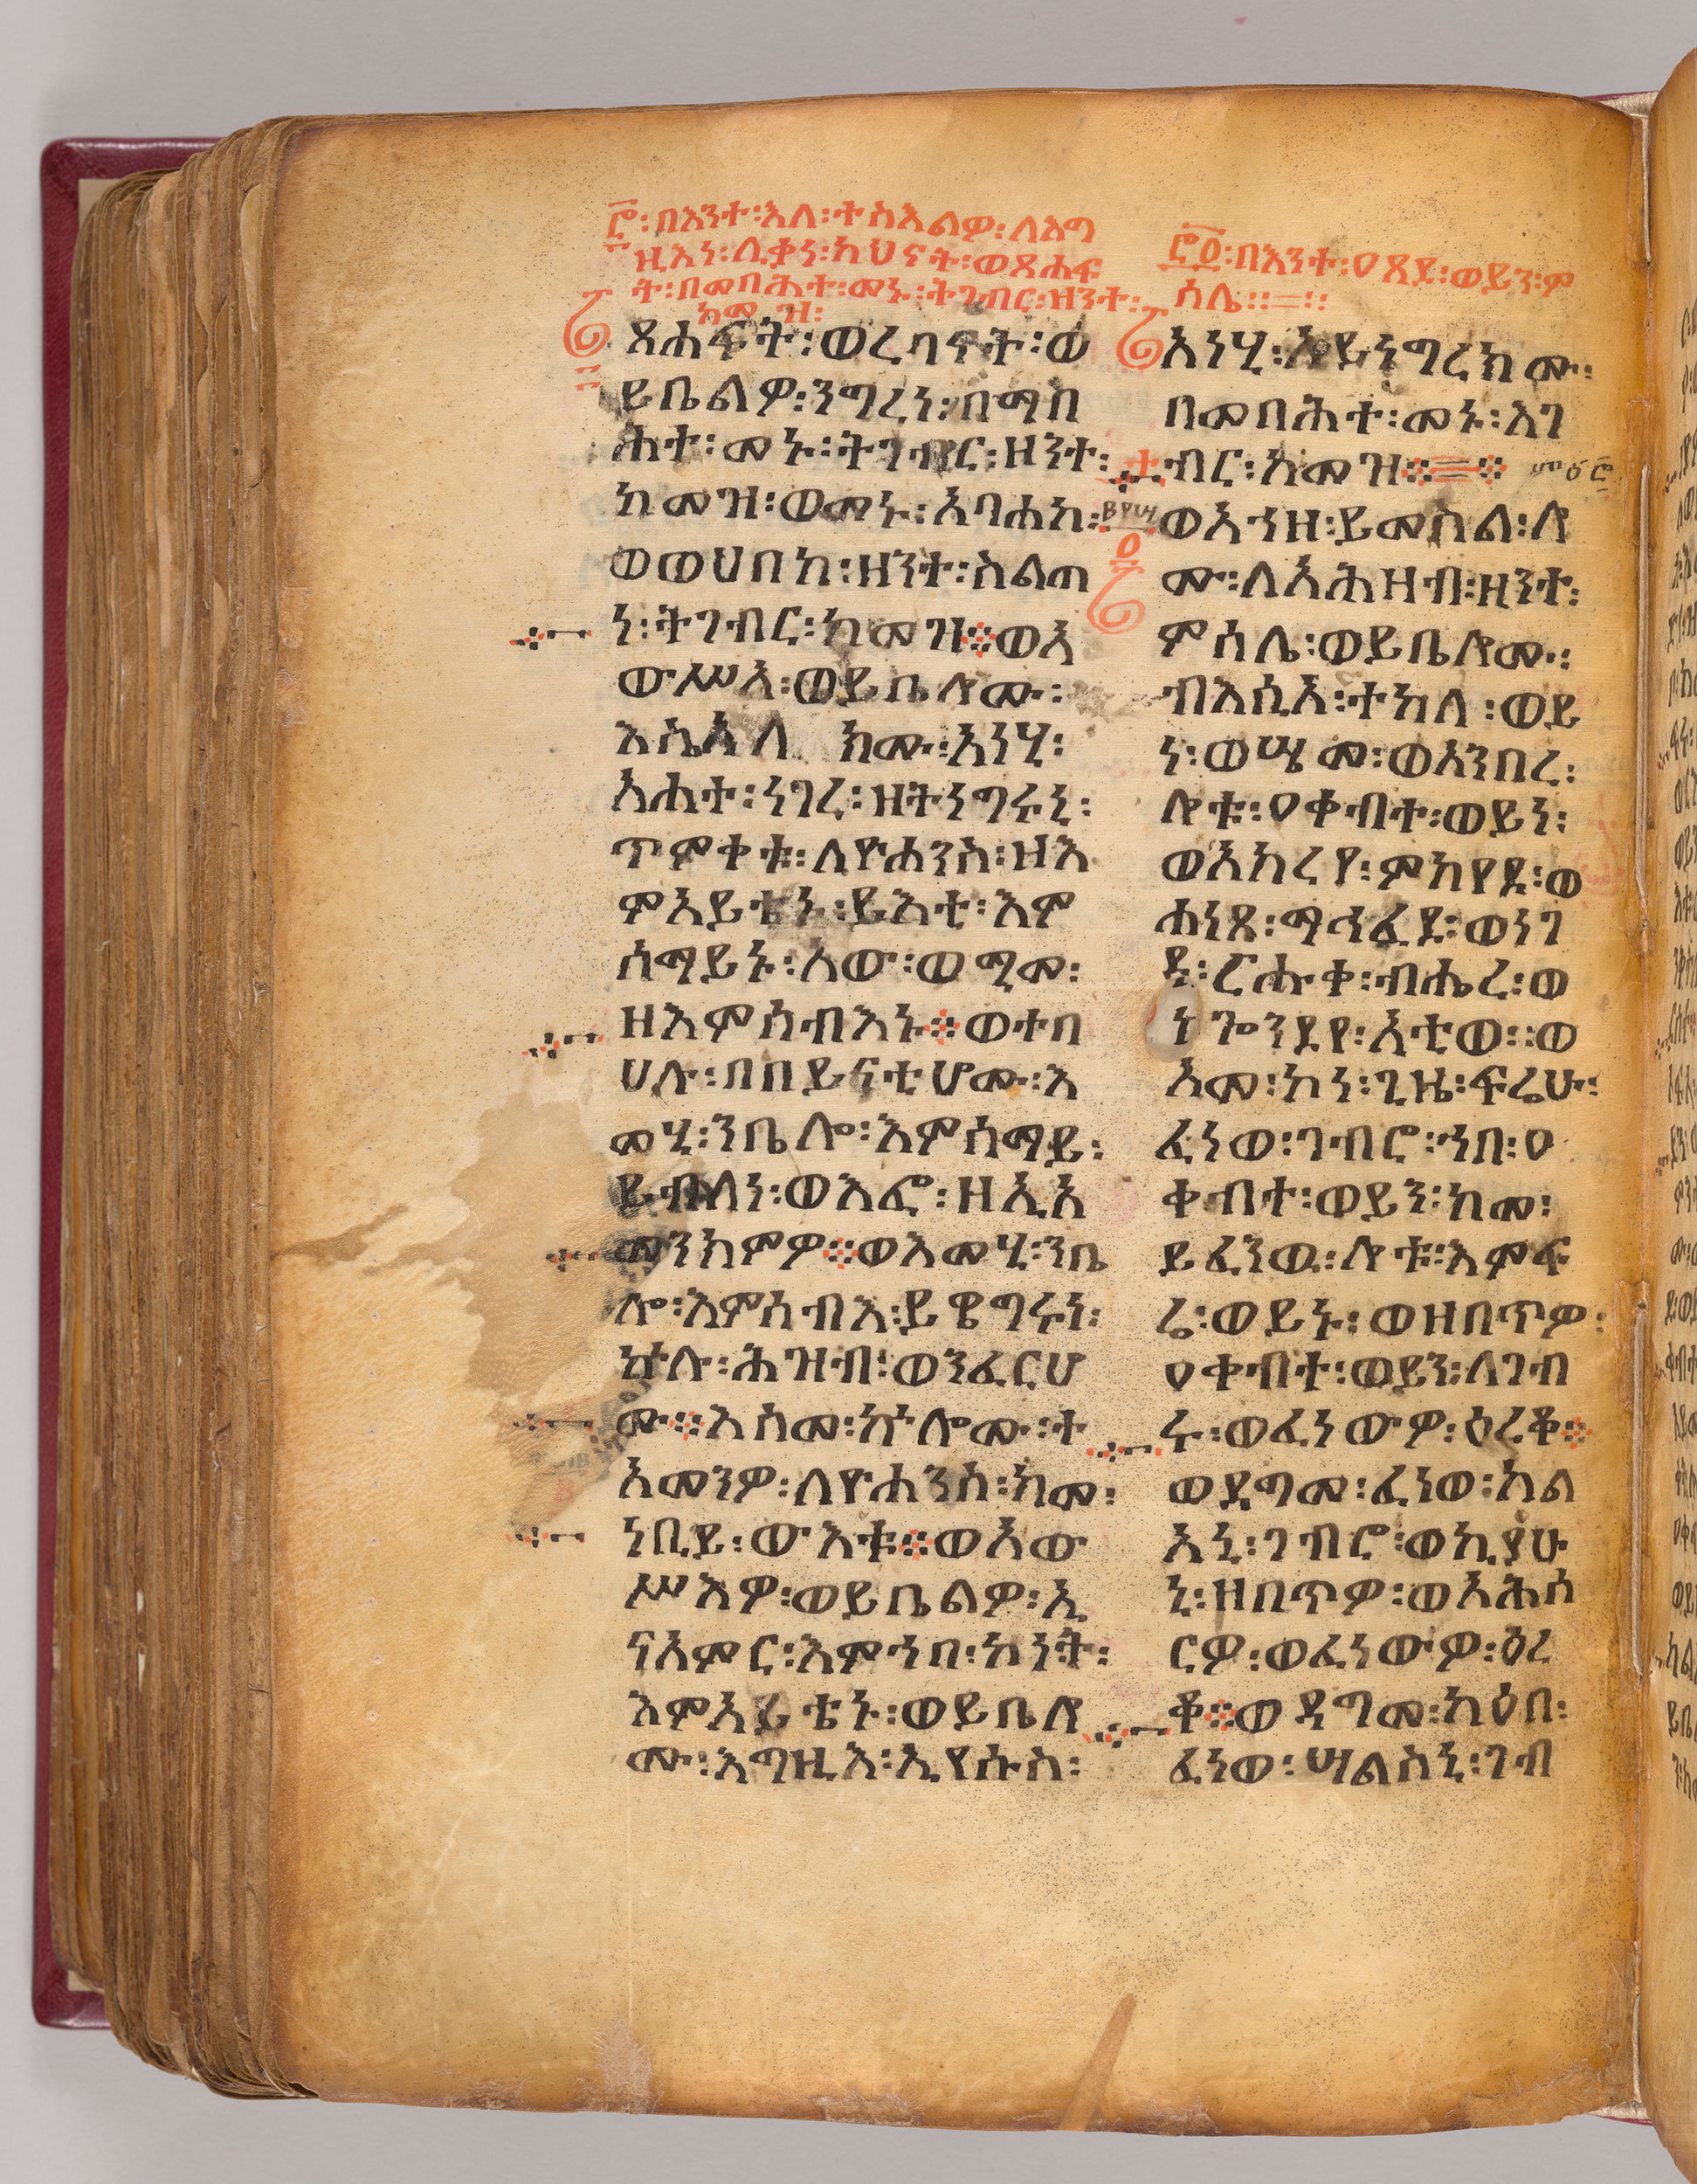 ፷፡በእንተ፡እለ፡ተስእልዎ፡ለእግ
ዚእነ፡ሊቃነ፡ካህናት፡ወጸሐፍ
ት፡በመባሕተ፡መኑ፡ትገብር፡ዘንተ፡
ከመ ዝ፡
ጸሐፍት፡ወረባናት፡ወ
ይቤልዎ፡ንግረነ፡በማበ
ሕተ፡መኑ፡ትገብር፡ዘንተ፡
ከመዝ፡ወመኑ፡አባሐከ፡
ወወሀበከ፡ዘንተ፡ስልጣ
ነ፡ትገብር፡ከመዝ፨ወአ
ውሥአ፡ወይቤሎሙ፡
እሴአለ ክሙ፡አነሂ፡
አሐተ፡ነገረ፡ዘትንግሩኒ፡
ጥምቀቱ፡ለዮሐንስ፡ዘእ
ምአይቴኑ፡ይእቲ፡እም
ሰማይኑ፡አው፡ወሚመ፡
ዘእምሰብእኑ፨ወተበ
ሀሉ፡በበይናቲሆሙ፡እ
መሂ፡ንቤሎ፡እምሰማይ፡
ይብለነ፡ወእፎ፡ዘኢአ
መንክምዎ፨ወእመሂ፡ንቤ
ሎ፡እምሰብእ፡ይዌግሩነ፡
ኵሉ፡ሕዝብ፡ወንፈርሆ
ሙ፨እስመ፡ኵሎሙ፡ተ
አመንዎ፡ለዮሐንስ፡ከመ፡
ነቢይ፡ውእቱ፨ወአው
ሥእዎ፡ወይቤልዎ፡ኢ
ናአምር፡እምኀበ፡ከነት፡
እምአይቴኑ፡ወይቤሎ
ሙ፡እግዚእ፡ኢየሱስ፡
፷፩፡በእንተ፡ዐጸደ፡ወይን፡ም
ሳሌ፡፡=፡፡
አነሂ፡ኢይነግረክሙ፡
በመበሕተ፡መኑ፡እገ
ብር፡ከመዝ፨=፨
ወእንዘ፡ይመስል፡ሎ
ሙ፡ለአሕዛብ፡ዘንተ፡
ምሳሌ፡ወይቤሎሙ፡
ብእሲአ፡ተከለ፡ወይ
ነ፡ወሤመ፡ወአንበረ፡
ሎቱ፡ዐቀብተ፡ወይነ፡
ወአክረየ፡ምክየደ፡ወ
ሐነጸ፡ማኅፈደ፡ወነገ
ደ፡ርሑቀ፡ብሔረ፡ወ
ጎንደየ፡አቲወ፡፡ወ
አመ፡ከነ፡ጊዜ፡ፍሬሁ፡
ፈነወ፡ገብሮ፡ኀበ፡ዐ
ቀብተ፡ወይን፡ከመ፡
ይፈንዉ፡ሎቱ፡እምፍ
ሬ፡ወይኑ፡ወዘበጥዎ፡
ዐቀብተ፡ወይን፡ለገብ
ሩ፡ወፈነውዎ፡ዕረቆ፨
ወደግመ፡ፈነወ፡ካል
አኒ፡ገብሮ፡ወኪያሁ
ኒ፡ዘበጥዎ፡ወአሕሰ
ርዎ፡ወፈነውዎ፡ዕረ
ቆ፨ወዳግመ፡ካዕበ፡
ፈነወ፡ሣልስኒ፡ገብ